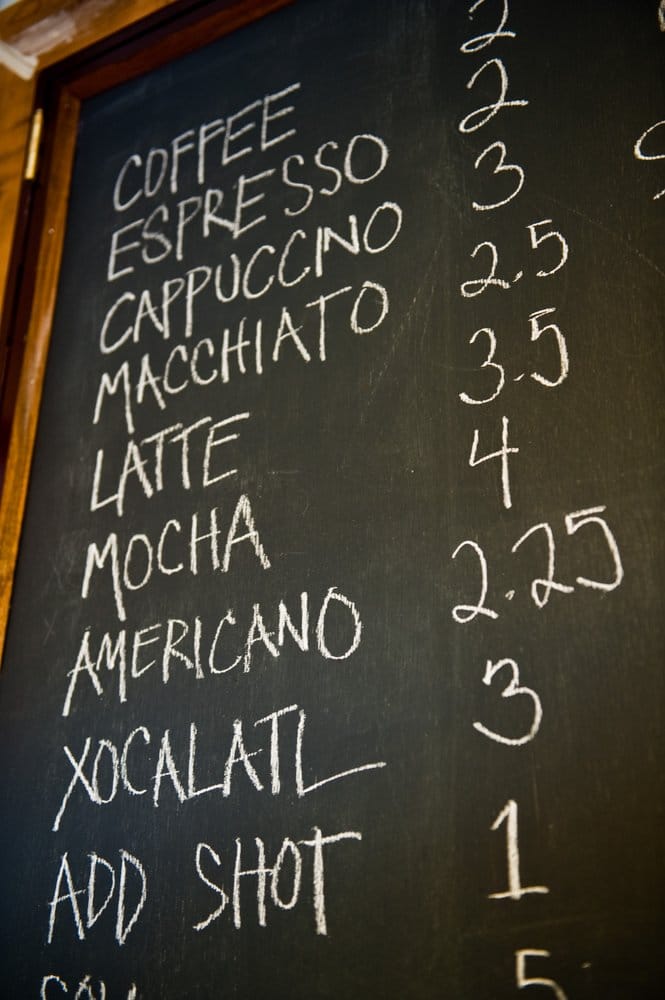 COFFEE 2
ESPRESSO 2
CAPPUCCINO 3
MACCHIATO 2.5
LATTE 3.5
MOCHA 4
AMERICANO 2.25
XOCALATL 3
ADD SHOT 1
5